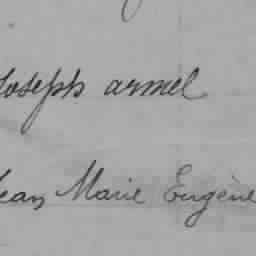 Joseph armel
Jean Marie Eugène